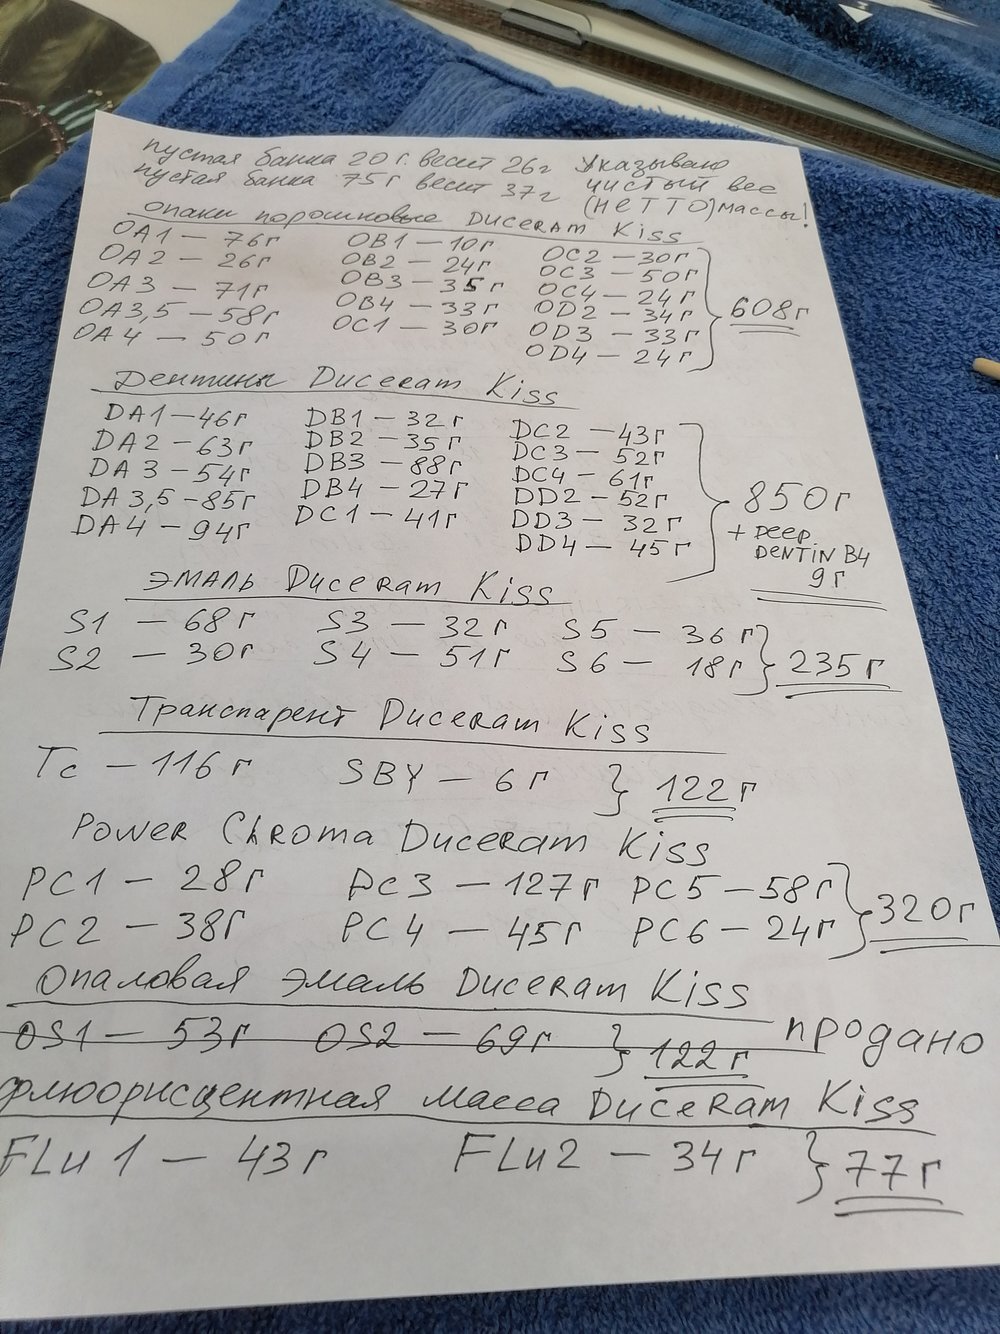 пустая банка 20 г. весит 26г Указывано
пустая банка 75г весит 37г чистый вес
(НЕТТО) массы!
опаки порошковые Duceram Kiss
OA1 — 76г OB1 — 10г OC2 — 30г
OA2 — 26г OB2 — 24г OC3 — 50г
OA3 — 71г OB3 — 35г OC4 — 24г
OA3,5 — 58г OB4 — 33г OD2 — 34г
OA4 — 50г OC1 — 30г OD3 — 33г
OD4 — 24г
608г
Дентины Duceram Kiss
DA1 — 46г DB1 — 32г DC2 — 43г
DA2 — 63г DB2 — 35г DC3 — 52г
DA3 — 54г DB3 — 88г DC4 — 61г
DA3,5 — 85г DB4 — 27г DD2 — 52г
DA4 — 94г DC1 — 41г DD3 — 32г
DD4 — 45г
850г
+ DEEP
DENTIN B4
9г
ЭМАЛЬ Duceram Kiss
S1 — 68г S3 — 32г S5 — 36г
S2 — 30г S4 — 51г S6 — 18г
235г
Транспарент Duceram Kiss
Tc — 116г SBY — 6г 122г
Power Chroma Duceram Kiss
PC1 — 28г PC3 — 127г PC5 — 58г
PC2 — 38г PC4 — 45г PC6 — 24г
320г
Опаловая эмаль Duceram Kiss
OS1 — 53г OS2 — 69г 122г продано
флюорисцентная масса Duceram Kiss
FLu1 — 43г FLu2 — 34г 77г